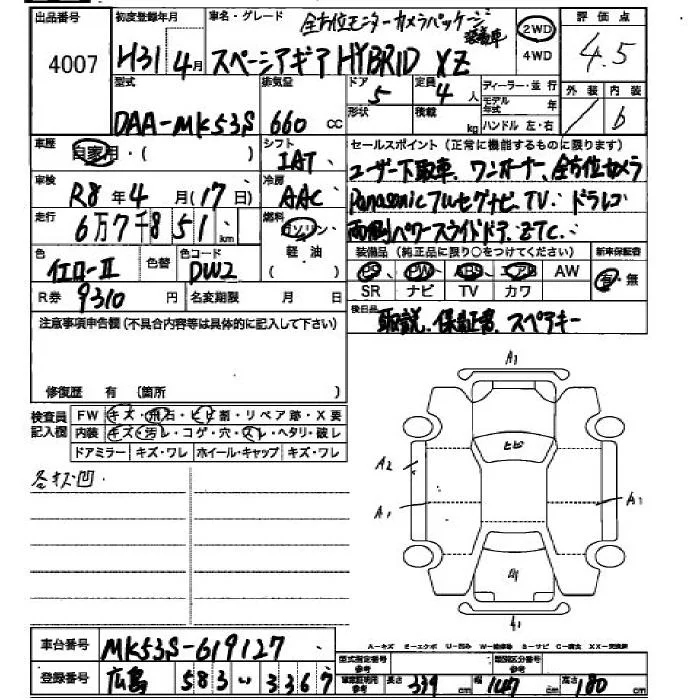 出品番号 4007
初度登録年月 H31年4月
車名・グレード 全方位モニターカメラパッケージ装着車
スペーシアギア HYBRID XZ
2WD
4WD
評価点 4.5
外装 内装 b
型式 DAA-MK53S
排気量 660 cc
ドア 5
形状
定員 4人
積載 kg
ディーラー・並行
モデル年式 年
ハンドル 左・右
車歴 自家用・( )
シフト IAT
セールスポイント(正常に機能するものに限ります)
ユーザー下取車、ワンオーナー、全方位カメラ
Panasonicフルセグナビ、TV・ドラレコ
両側パワースライドドア、ETC、
車検 R8年4月(17日)
冷房 AAC
走行 6万7千851km
燃料 ガソリン・軽油( )
色 イエロー Ⅱ
色替
色コード DW2
装備品(純正品に限り○をつけてください) 新車保証書
PS PW ABS エアB AW 有・無
SR ナビ TV カワ
R券 9310 円
名変期限 月 日
後日品 取説、保証書、スペアキー
注意事項申告欄(不具合内容等は具体的に記入して下さい)
修復歴 有 (箇所 )
検査員記入欄
FW キズ・飛石・ヒビ割・リペア跡・X要
内装 キズ・汚レ・コゲ・穴・スレ・ヘタリ・破レ
ドアミラー キズ・ワレ ホイール・キャップ キズ・ワレ
各キズ凹
A1
ヒビ
A2
A1
A1
A1
車台番号 MK53S-619127
登録番号 広島 583 い 3367
A-キズ E-エクボ U-凹み W-補修跡 S-サビ C-腐食 XX-交換済
型式指定番号 参考
類別区分番号 参考
車庫証明用 参考
長さ 339 cm
幅 147 cm
高さ 180 cm